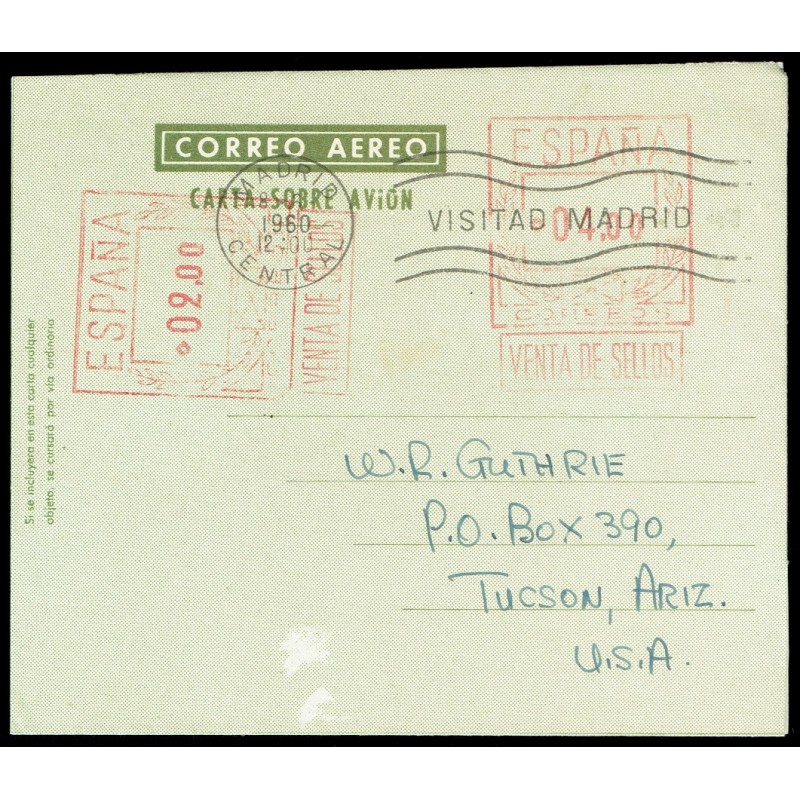 CORREO AEREO
CARTA-SOBRE AVIÓN
MADRID
1960
12:00
CENTRAL
VISITAD MADRID
ESPAÑA
04.00
CORREOS
VENTA DE SELLOS
ESPAÑA
02.00
VENTA DE SELLOS
Si se incluyera en esta carta cualquier
objeto, se cursará por vía ordinaria
W.R. GUTHRIE
P.O. BOX 390,
TUCSON, ARIZ.
U.S.A.